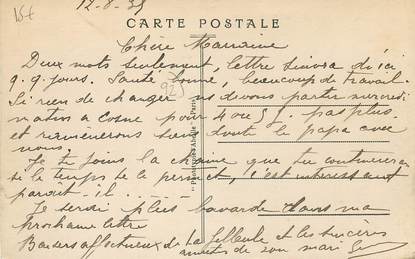 15f
12-8-35
CARTE POSTALE
Chère Marraine
Deux mots seulement, lettre suivra d'ici
q.q. jours. Santé bonne, beaucoup de travail.
Si rien de changer nous devons partir mercredi
matin a Cosne pour 4 ou 5 j. pas plus
et ramènerons sans doute le papa avec
nous.
Je te joins la chaine que tu continueras
si le temps te le permet, c'est intéressant
parait-il.
Je serai plus bavarde dans ma
prochaine lettre
Baisers affectueux de la filleule et les sincères
amitiés de son mari